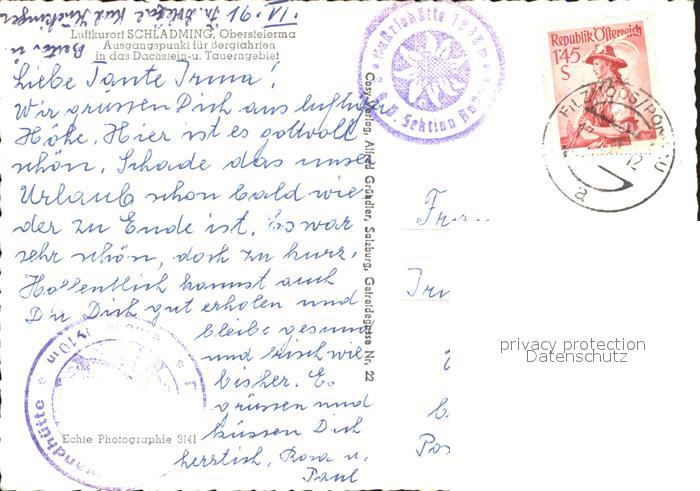 Luftkurort SCHLADMING, Obersteierma
Ausgangspunkt für Bergfahrten
in das Dachstein-u. Tauerngebiet
Liebe Tante Irma!
Wir grüssen Dich aus luftiger
Höhe. Hier ist es gottvoll
schön. Schade das unser
Urlaub schon bald wie
der zu Ende ist. Es war
sehr schön, doch zu kurz.
Hoffentlich kannst auch
Du Dich gut erholen und
bleibe gesund
und frisch wie
bisher. Es
grüssen und
küssen Dich
herzlich, Rosa u.
Paul
Echte Photographie 3141
Cosy-Verlag, Alfred Gründler, Salzburg, Gstrolldegasse Nr. 22
1858 m
Sektion
Republik Österreich
1'45
S
FILZMOOS
a
Fra
Ir
Pos
1710m
privacy protection
Datenschutz